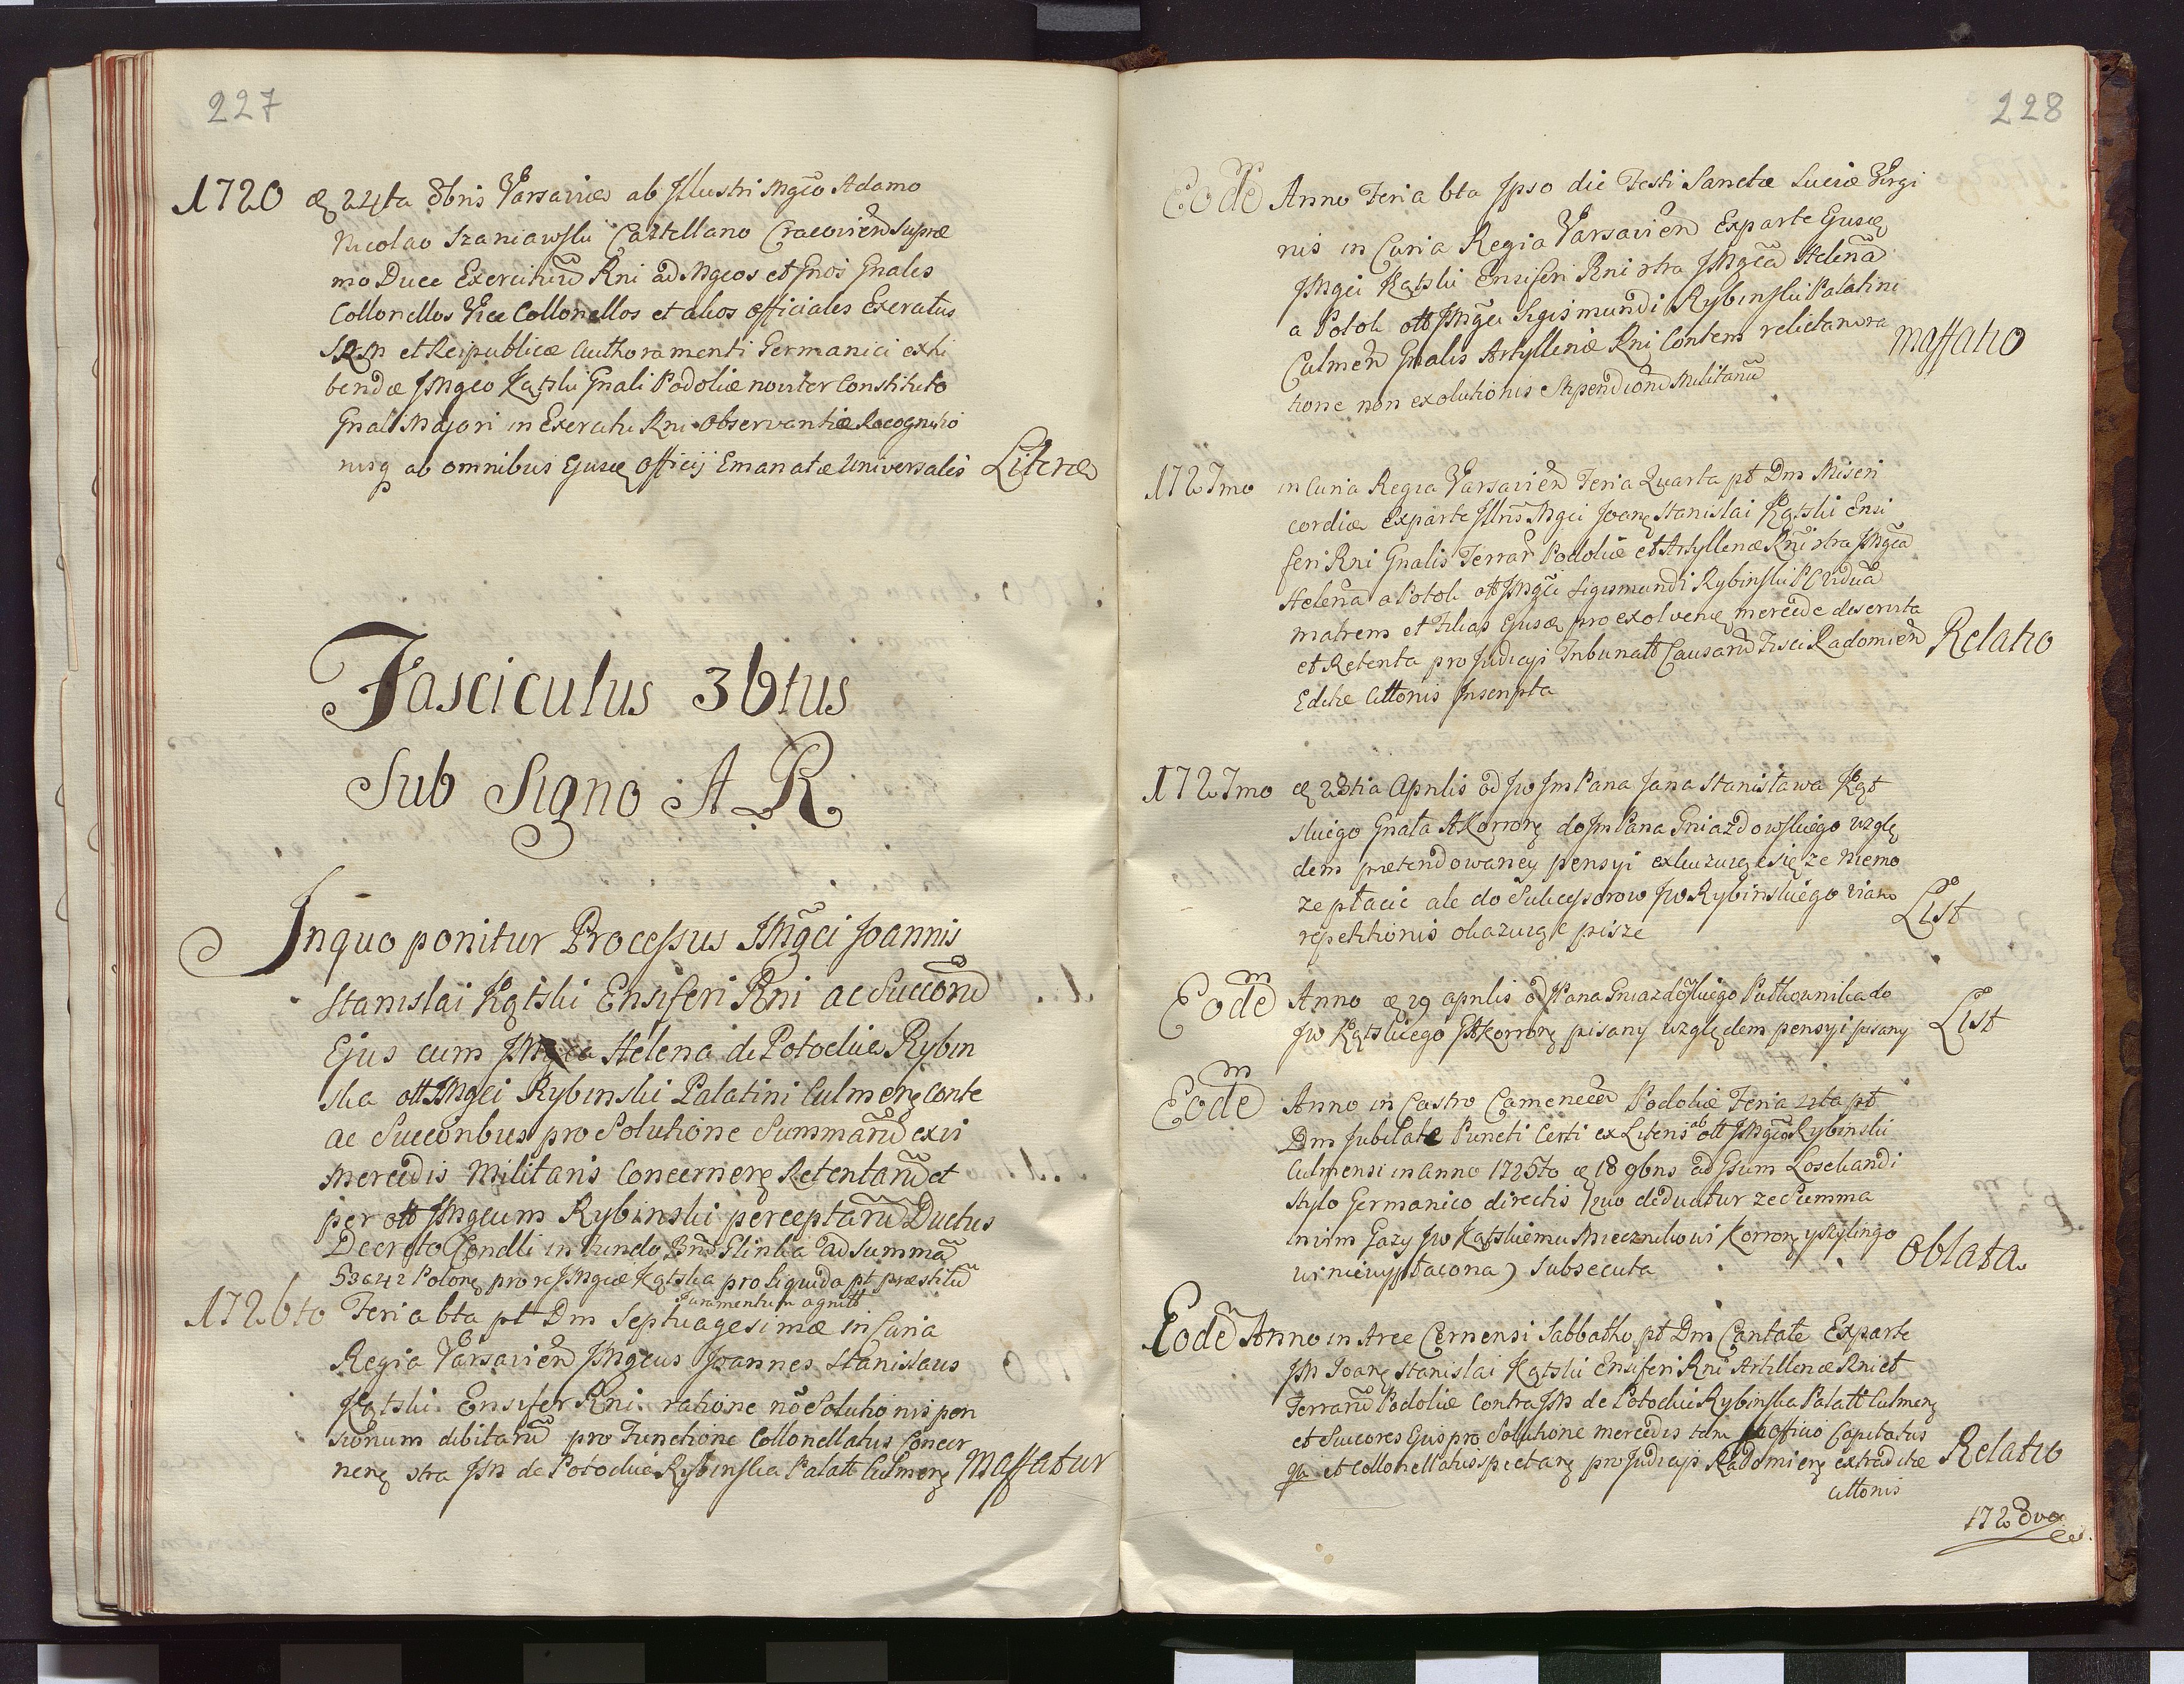 227
1720 æ 24ta 8bris Varsaviæ ab Illustri Mgco Adamo
Nicolao Szaniawski Castellano Cracovien Supre
mo Duce Exercituu Rni ad Mgcos et Gnos Gnales
Collonellos Vice Collonellos et alios officiales Exercitus
SRM et Reipublicæ Authoramenti Germanici exhi
bendæ JMgco Kątski Gnali Podoliæ noviter Constituto
Gnali Majori in Exercitu Rni Observantiæ Recognitio
nisq ab omnibus Ejusæ officij Emanatæ Universales Literæ
Fasciculus 36tus
Sub Signo A R
Inquo ponitur Processus JMgci Joannis
Stanislai Kątski Ensiferi Rni ac Succoru
Ejus cum Helena de Potockie Rybin
ska ott JMgci Rybinski Palatini Culmenę Conte
ac Succoribus pro Solutione Summaru exvi
Mercedis Militaris Concernenę Retentaru et
per ott JMgcum Rybinski perceptaru Ductus
Decreto Condli in fundo Bnr Slinka ad Summa
53642 Polonę pro re JMgcæ Kątska pro liquida pt præstitu
Juramentum agnitt
1726to Feria 6ta pt Dm Septuagesimæ in Curia
Regia Varsavien JMgcus Joannes Stanislaus
Kątski Ensifer Rni ratione no Solutionis pen
sionum debitaru pro Functione Collonellatus Concer
nenę ctra JM de Potockie Rybinska Palatt Culmenę Maffatur
228
Eodem Anno Feria 6ta Ipso die Festi Sanctæ Luciæ Virgi
nis in Curia Regia Varsavien Exparte Ejusæ
JMgci Kątski Ensiferi Rni ctra JMgca Helena
a Potok ott JMgci Sigismundi Rybinski Palatini
Culmen Gnalis Artylleriæ Rni Contem relictam ra
tione non exolutionis Stipendioru Militariu Maffatio
1727mo in Curia Regia Varsavien Feria Quarta pt Dm Miseri
cordiæ Exparte Illris Mgci Joanę Stanislai Kątski Ensi
feri Rni Gnalis Terrar Podoliæ et Artylleriæ Rni ctra JMgca
Helena a Potok ott JMgci Sigismundi Rybinski PC Vidua
matrem et Filias Ejusæ pro exolvenę mercede deservita
et Retenta pro Judicaji Tribunatt Causaru Fisci Radomien Relatio
Editæ Attonis Inscripta
1727mo æ 23tia Aprilis od Jw Jm Pana Jana Stanisława Kąt
skiego Gnała A Korronę do Jm Pana Gniazdowskiego wzglę
dem prætendowaney pensyi exkuzuiące się ze niemo
ze płacic ale do Sukcessorow Jw Rybinskiego viam
repetitionis okazuiące pisze List
Eodem Anno æ 29 aprilis od Pana Gniazdowskiego Pułkownika do
Jw Kątskiego GA korronę pisany względem pensyi pisany List
Eodem Anno in Castro Camenecen Podoliæ Feria 4ta pt
Dm Jubilate Puncti Certi ex Literis ab ott JMgco Rybinski
Culmensi in anno 1725to æ 18 9bris ad Gsum Loschandi
Stylo Germanico directis (quo deducitur ze Summa
nirm Gazy Jw Kątskiemu Miecznikowi Korronę y Rylingo
wi niewypłacona) Subsecuta Oblata
Eodem Anno in Arce Cernensi Sabbatho pt Dm Cantate Exparte
JM Joanę Stanislai Kątski Ensiferi Rni Artilleriæ Rni et
Terraru Podoliæ Contra JM de Potockie Rybinska Palatt Culmenę
et Succores Ejus pro Solutione mercedis tam ex officio Capitatus
qa et Collonellatus spectanę pro Judicaji Radomienę extraditæ Relatio
Attonis
1728va